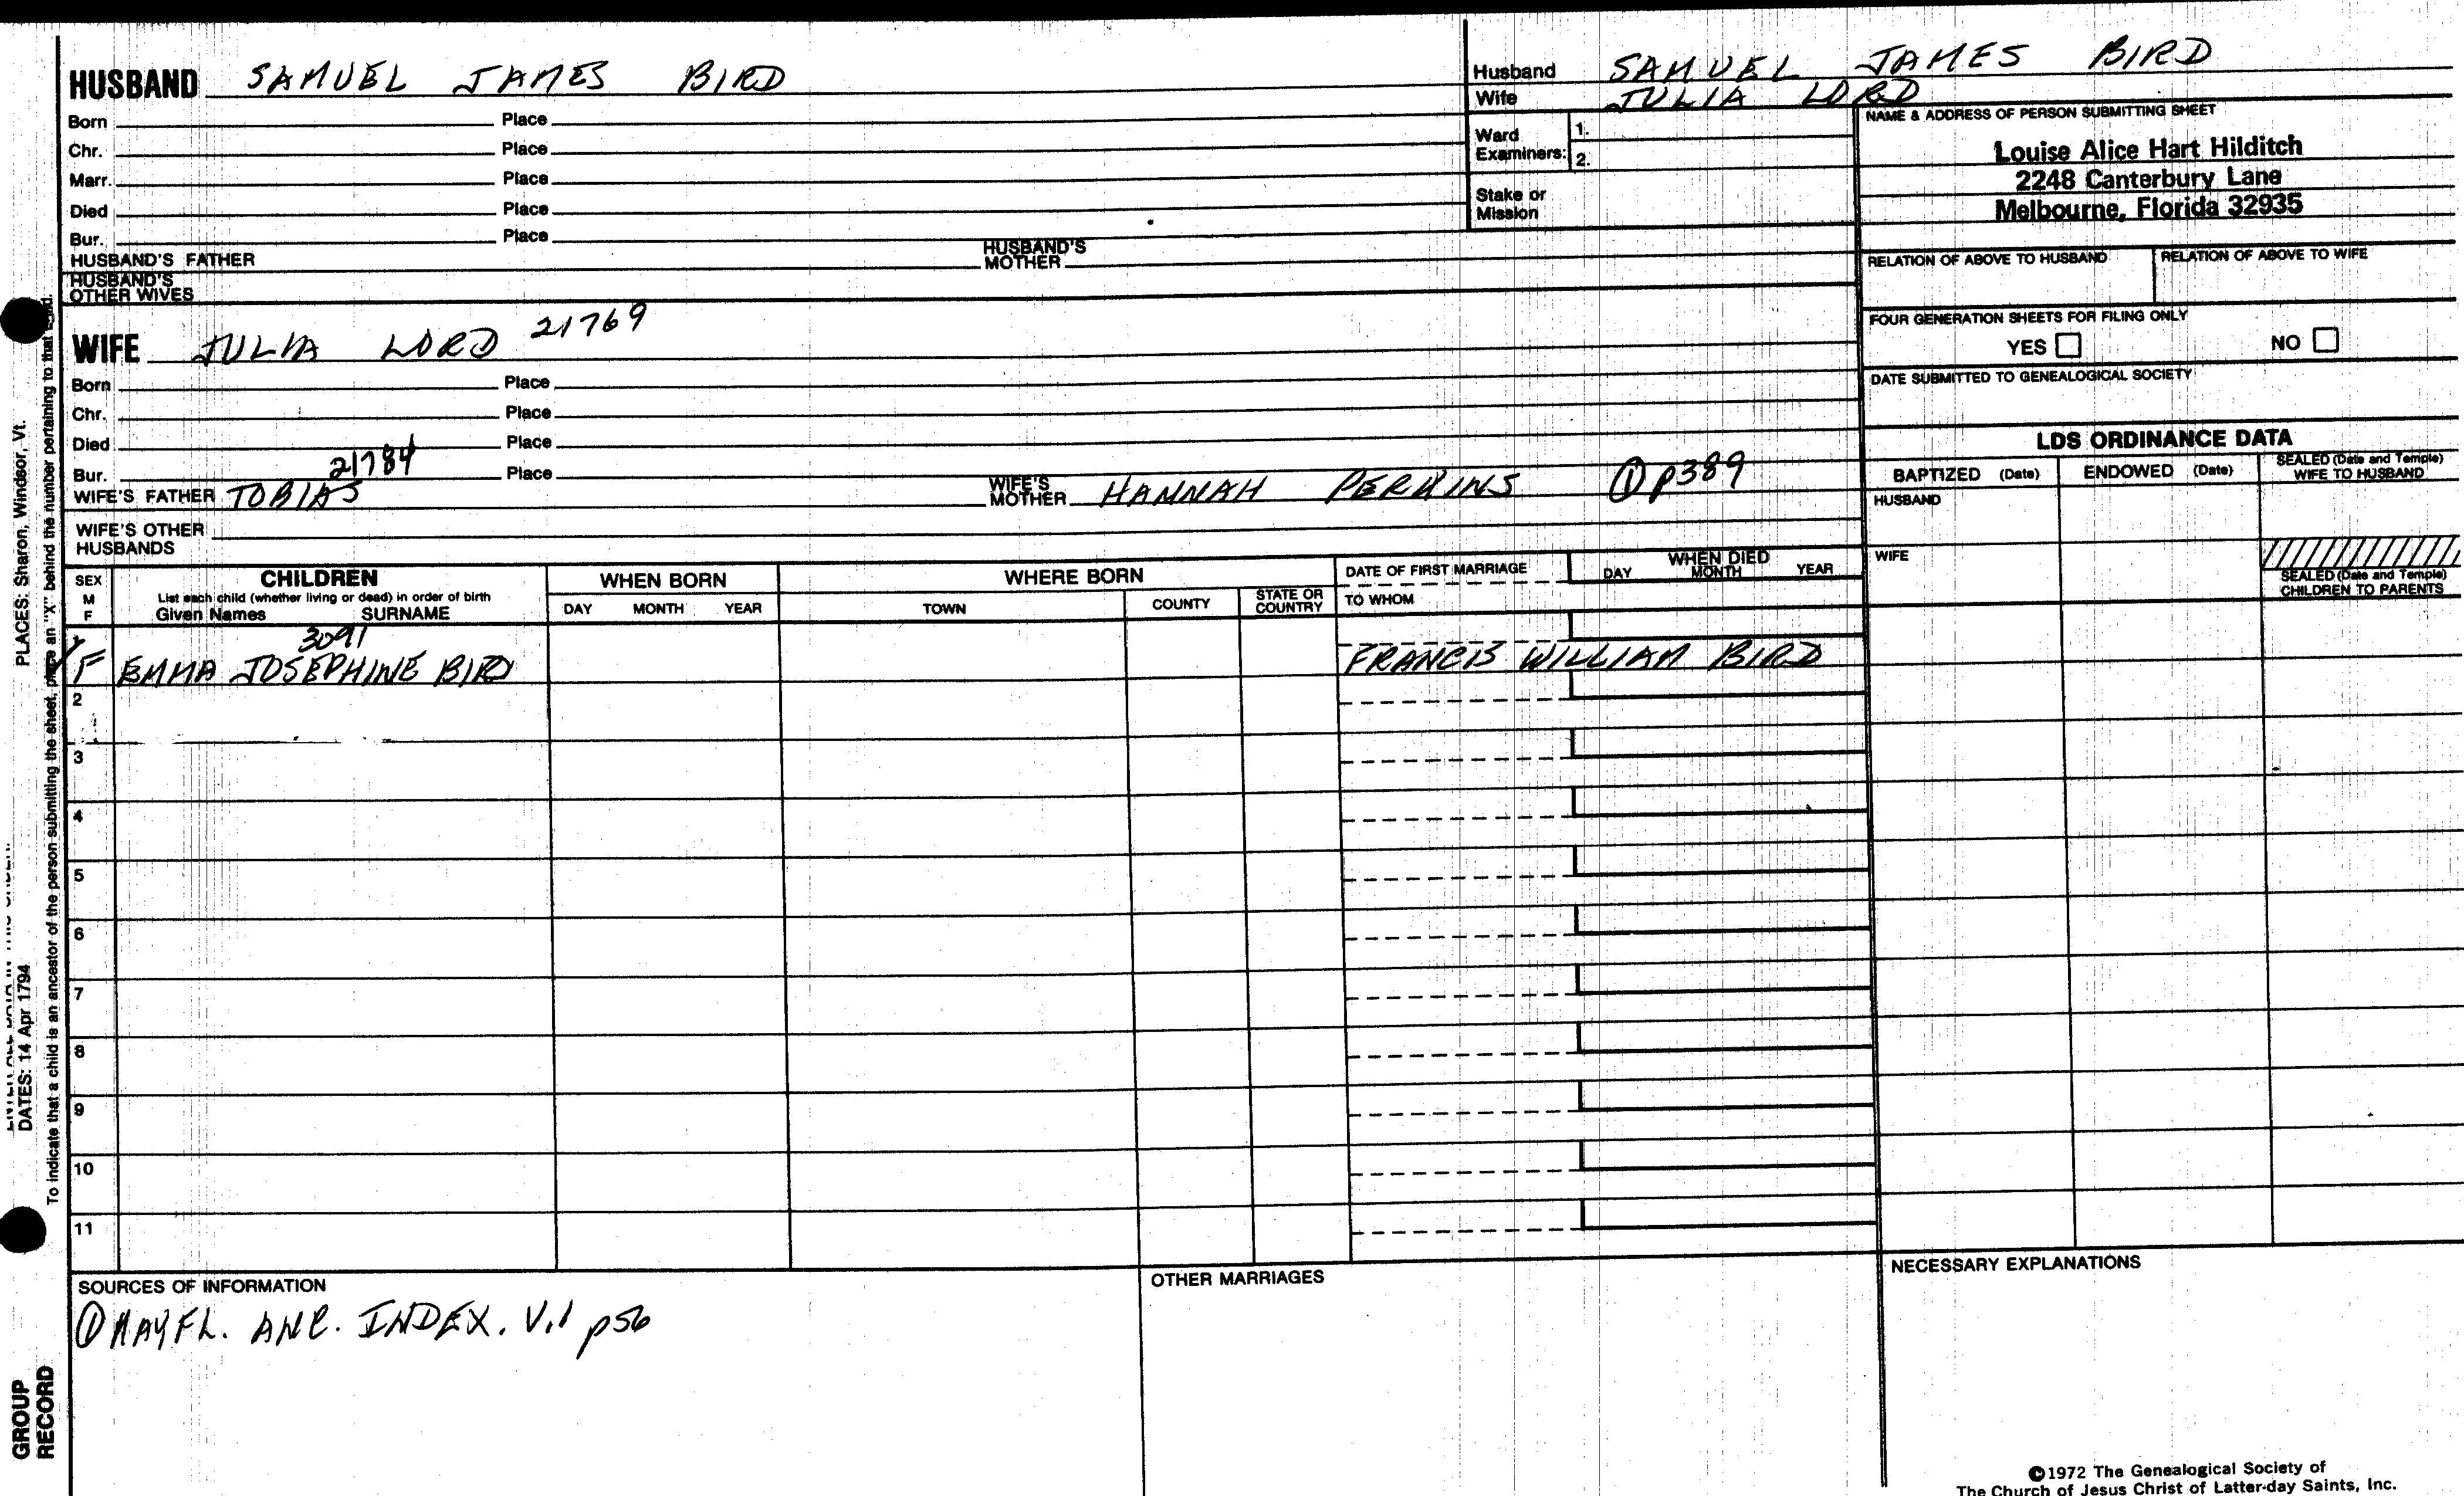 HUSBAND SAMUEL JAMES BIRD
Born Place
Chr. Place
Marr. Place
Died Place
Bur. Place
HUSBAND'S FATHER HUSBAND'S MOTHER
HUSBAND'S OTHER WIVES
WIFE JULIA LORD 21769
Born Place
Chr. Place
Died Place
Bur. 21784 Place
WIFE'S FATHER TOBIAS WIFE'S MOTHER HANNAH PERKINS ① p389
WIFE'S OTHER HUSBANDS
Husband SAMUEL JAMES BIRD
Wife JULIA LORD
Ward Examiners: 1.
2.
Stake or Mission
NAME & ADDRESS OF PERSON SUBMITTING SHEET
Louise Alice Hart Hilditch
2248 Canterbury Lane
Melbourne, Florida 32935
RELATION OF ABOVE TO HUSBAND RELATION OF ABOVE TO WIFE
FOUR GENERATION SHEETS FOR FILING ONLY
YES NO
DATE SUBMITTED TO GENEALOGICAL SOCIETY
LDS ORDINANCE DATA
BAPTIZED (Date) ENDOWED (Date) SEALED (Date and Temple) WIFE TO HUSBAND
HUSBAND
WIFE
SEALED (Date and Temple)
CHILDREN TO PARENTS
SEX M F CHILDREN WHEN BORN WHERE BORN DATE OF FIRST MARRIAGE WHEN DIED
List each child (whether living or dead) in order of birth
Given Names SURNAME DAY MONTH YEAR TOWN COUNTY STATE OR COUNTRY TO WHOM DAY MONTH YEAR
1 3091
F EMMA JOSEPHINE BIRD FRANCIS WILLIAM BIRD
2
3
4
5
6
7
8
9
10
11
SOURCES OF INFORMATION
① MAYFL. ANC. INDEX. V.1 p56
OTHER MARRIAGES
NECESSARY EXPLANATIONS
©1972 The Genealogical Society of
The Church of Jesus Christ of Latter-day Saints, Inc.
PLACES: Sharon, Windsor, Vt.
DATES: 14 Apr 1794
To indicate that a child is an ancestor of the person submitting the sheet, place an "X" behind the number pertaining to that child.
GROUP
RECORD